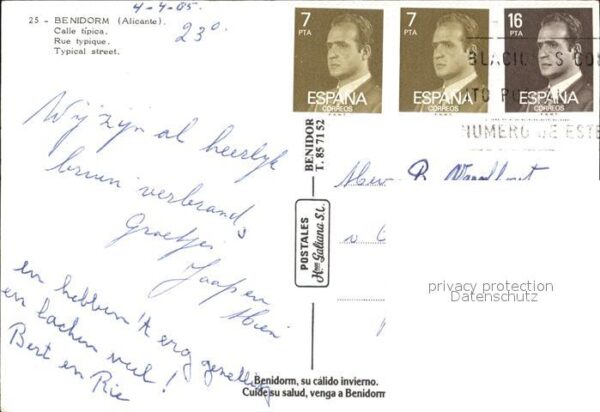 4-4-85
25 - BENIDORM (Alicante).
Calle típica.
Rue typique.
Typical street.
23°
7
PTA
ESPAÑA
CORREOS
7
PTA
ESPAÑA
CORREOS
16
PTA
ESPAÑA
CORREOS
NUMERO DE ESTE
Wij zijn al heerlijk
bruin verbrand,
Groetjes
Jaap en
Mien
en hebben 't erg gezellig
en lachen veel!
Bert en Rie
BENIDOR
T. 85 71 52
POSTALES
Hnos Galiana S.L.
privacy protection
Datenschutz
Benidorm, su cálido invierno.
Cuide su salud, venga a Benidorm